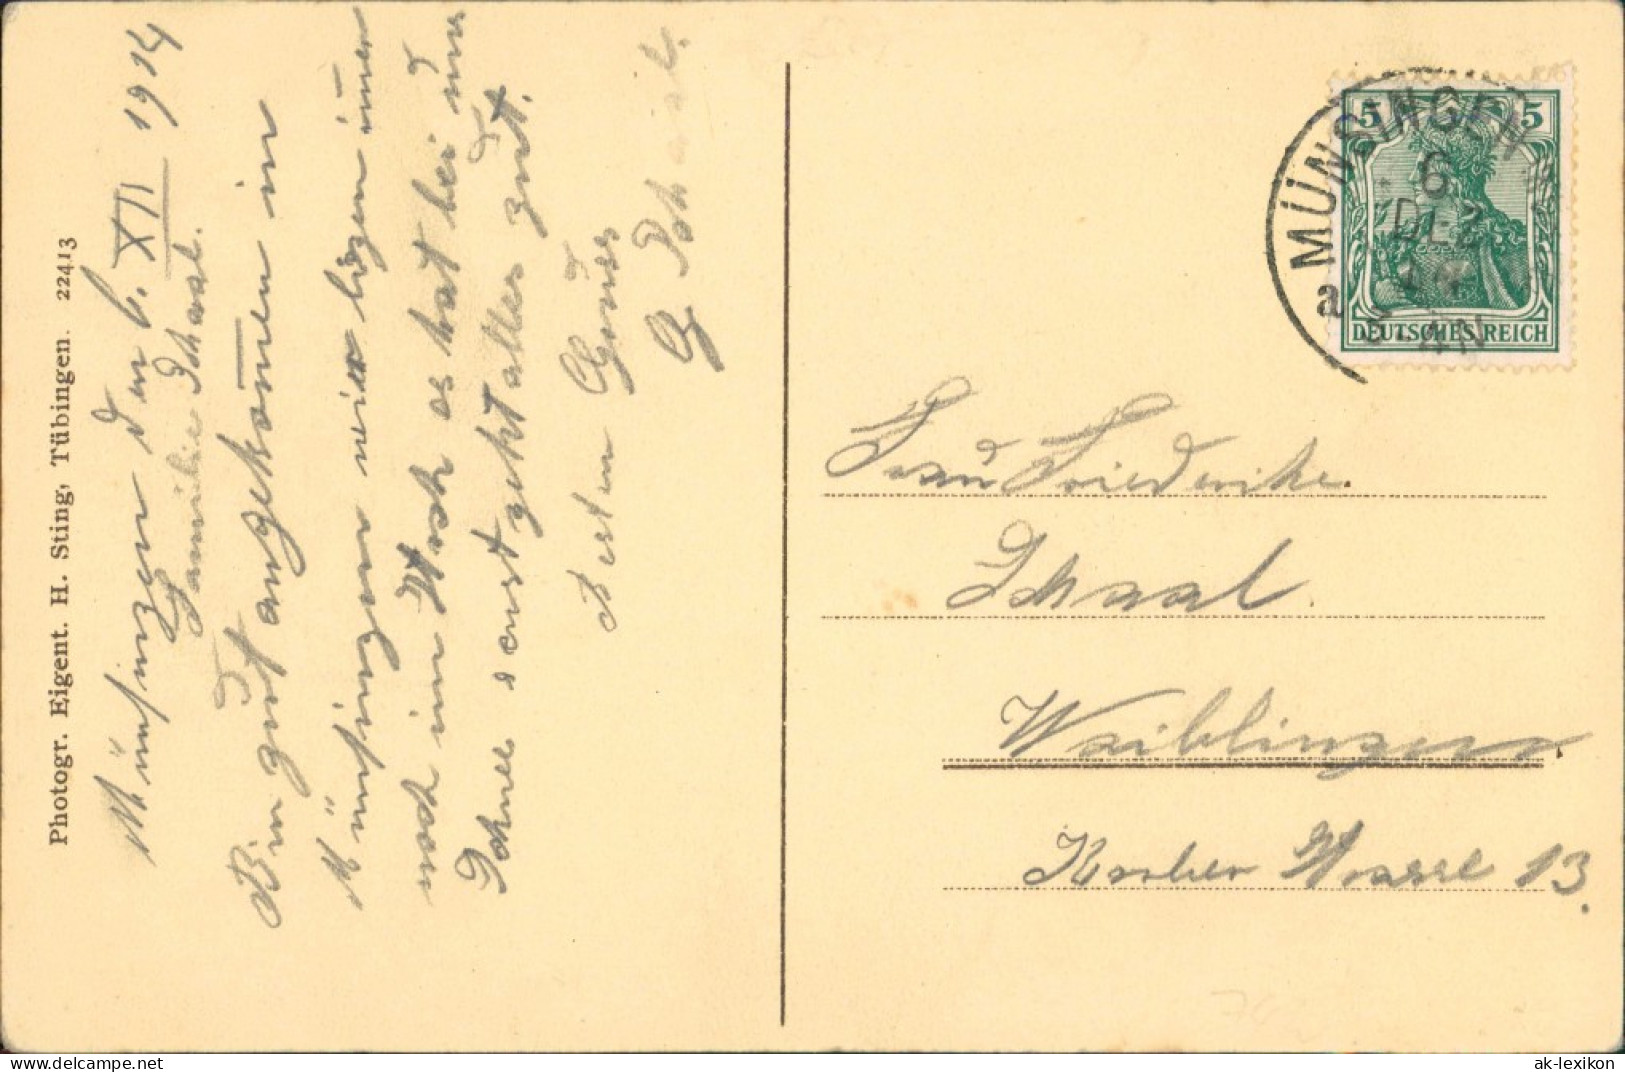 Photogr. Eigent. H. Sting, Tübingen. 22413
Münsingen den 6. XII 1914
Familie Schaal.
Bin gut angekom̅en in
Münsingen wir ligen im̅er
noch im es hat bei uns
Schnee sonst geht alles gut.
Besten Gruss
G. Schaal.
MÜNSINGEN
6
DEZ
14
3-4N
a
5 5
DEUTSCHES REICH
Frau Friederike.
Schaal.
Waiblingen.
Korber Strasse 13.
ak-lexikon